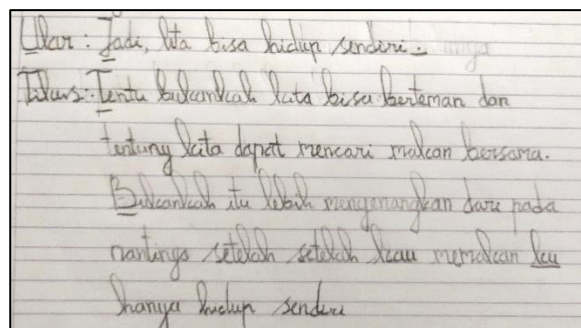 Ular : Jadi, kita bisa hidup sendiri
Tikus : Tentu bukankah kita bisa berteman dan
tentuny kita dapat mencari makan bersama.
Bukankah itu lebih menyenangkan dari pada
nantinya setelah setelah kau memakan ku
hanya hidup sendiri